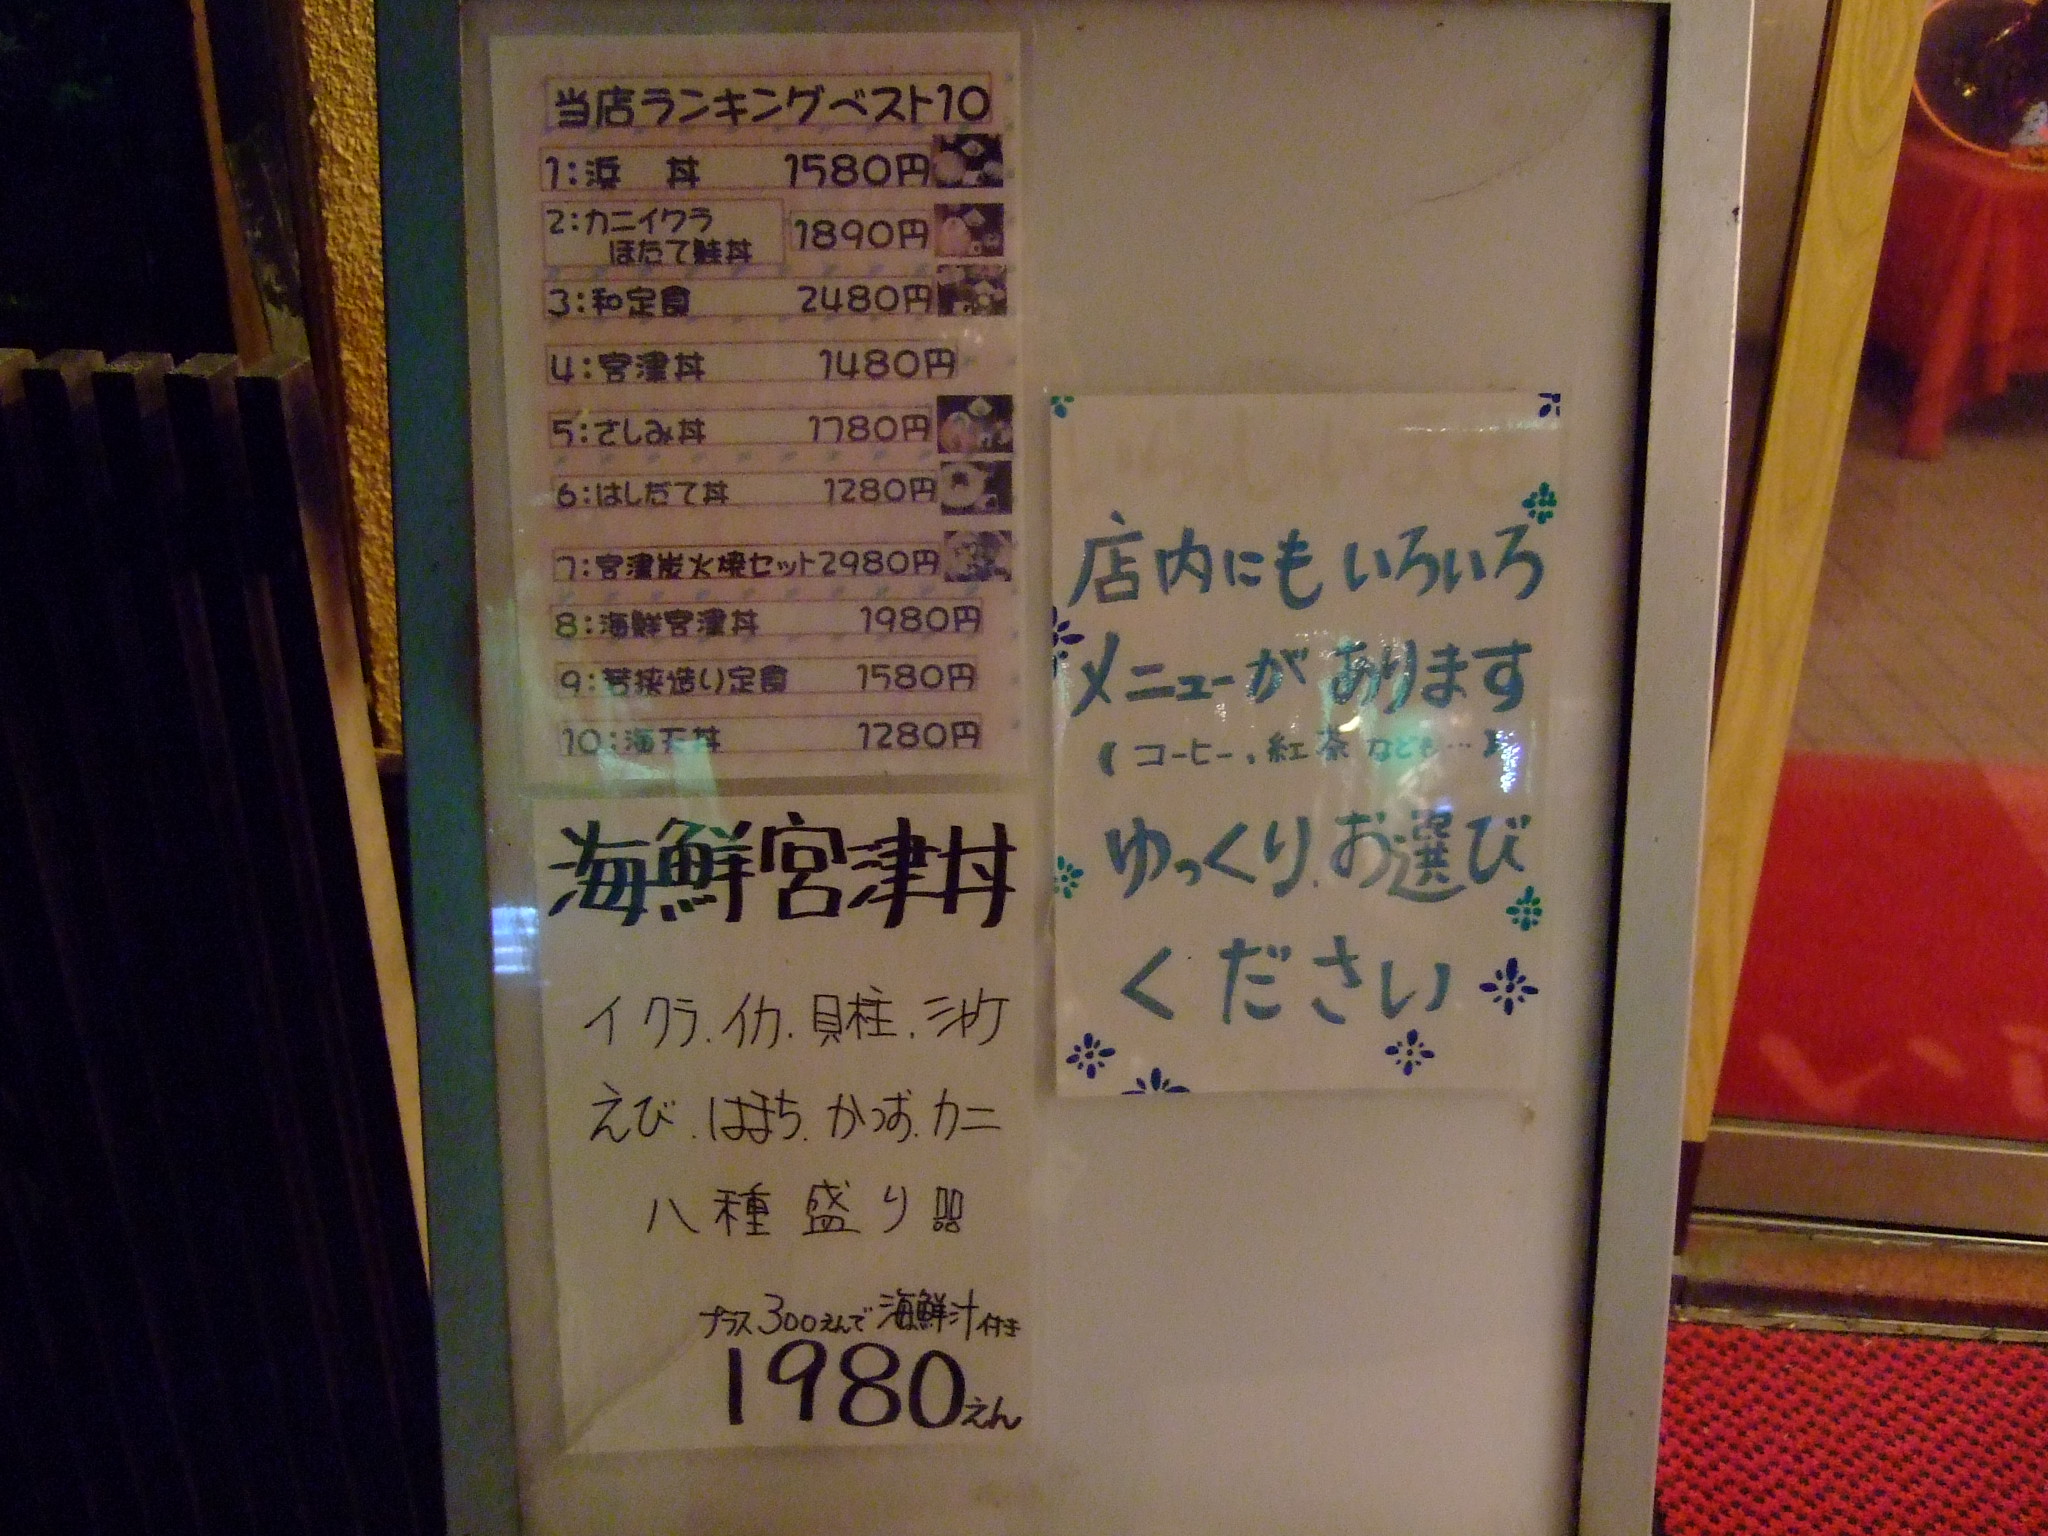 当店ランキングベスト10
1:浜 丼 1580円
2:カニイクラ
ほたて鮭丼 1890円
3:和定食 2480円
4:宮津丼 1480円
5:さしみ丼 1780円
6:はしだて丼 1280円
7:宮津炭火焼セット2980円
8:海鮮宮津丼 1980円
9:若狭造り定食 1580円
10:海天丼 1280円
海鮮宮津丼
イクラ.イカ.貝柱.シャケ
えび.はまち.かつお.カニ
八種盛り!!
プラス300えんで海鮮汁付き
1980えん
店内にもいろいろ
メニューがあります
(コーヒー、紅茶なども…)
ゆっくりお選び
ください